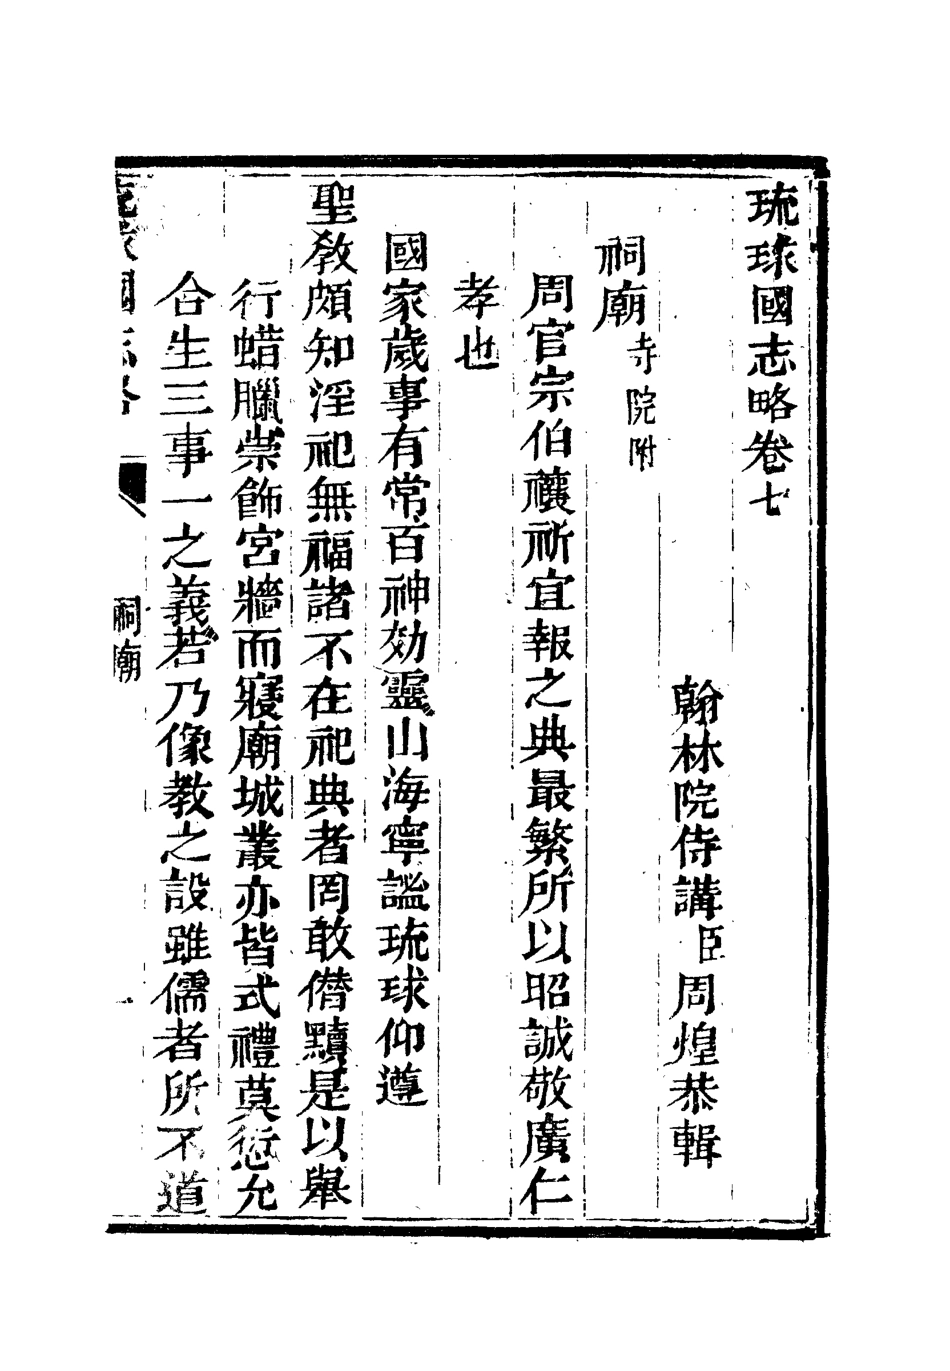 琉球國志略卷七
翰林院侍講臣周煌恭輯
祠廟寺院附
周官宗伯禳祈宜報之典最繁所以昭誠敬廣仁
孝也
國家歲事有常百神効靈山海寧謐琉球仰遵
聖教頗知淫祀無福諸不在祀典者罔敢僭黷是以舉
行蜡臘崇飾宮牆而寢廟城叢亦皆式禮莫愆允
合生三事一之義若乃像教之設雖儒者所不道
琉球國志略
祠廟
一